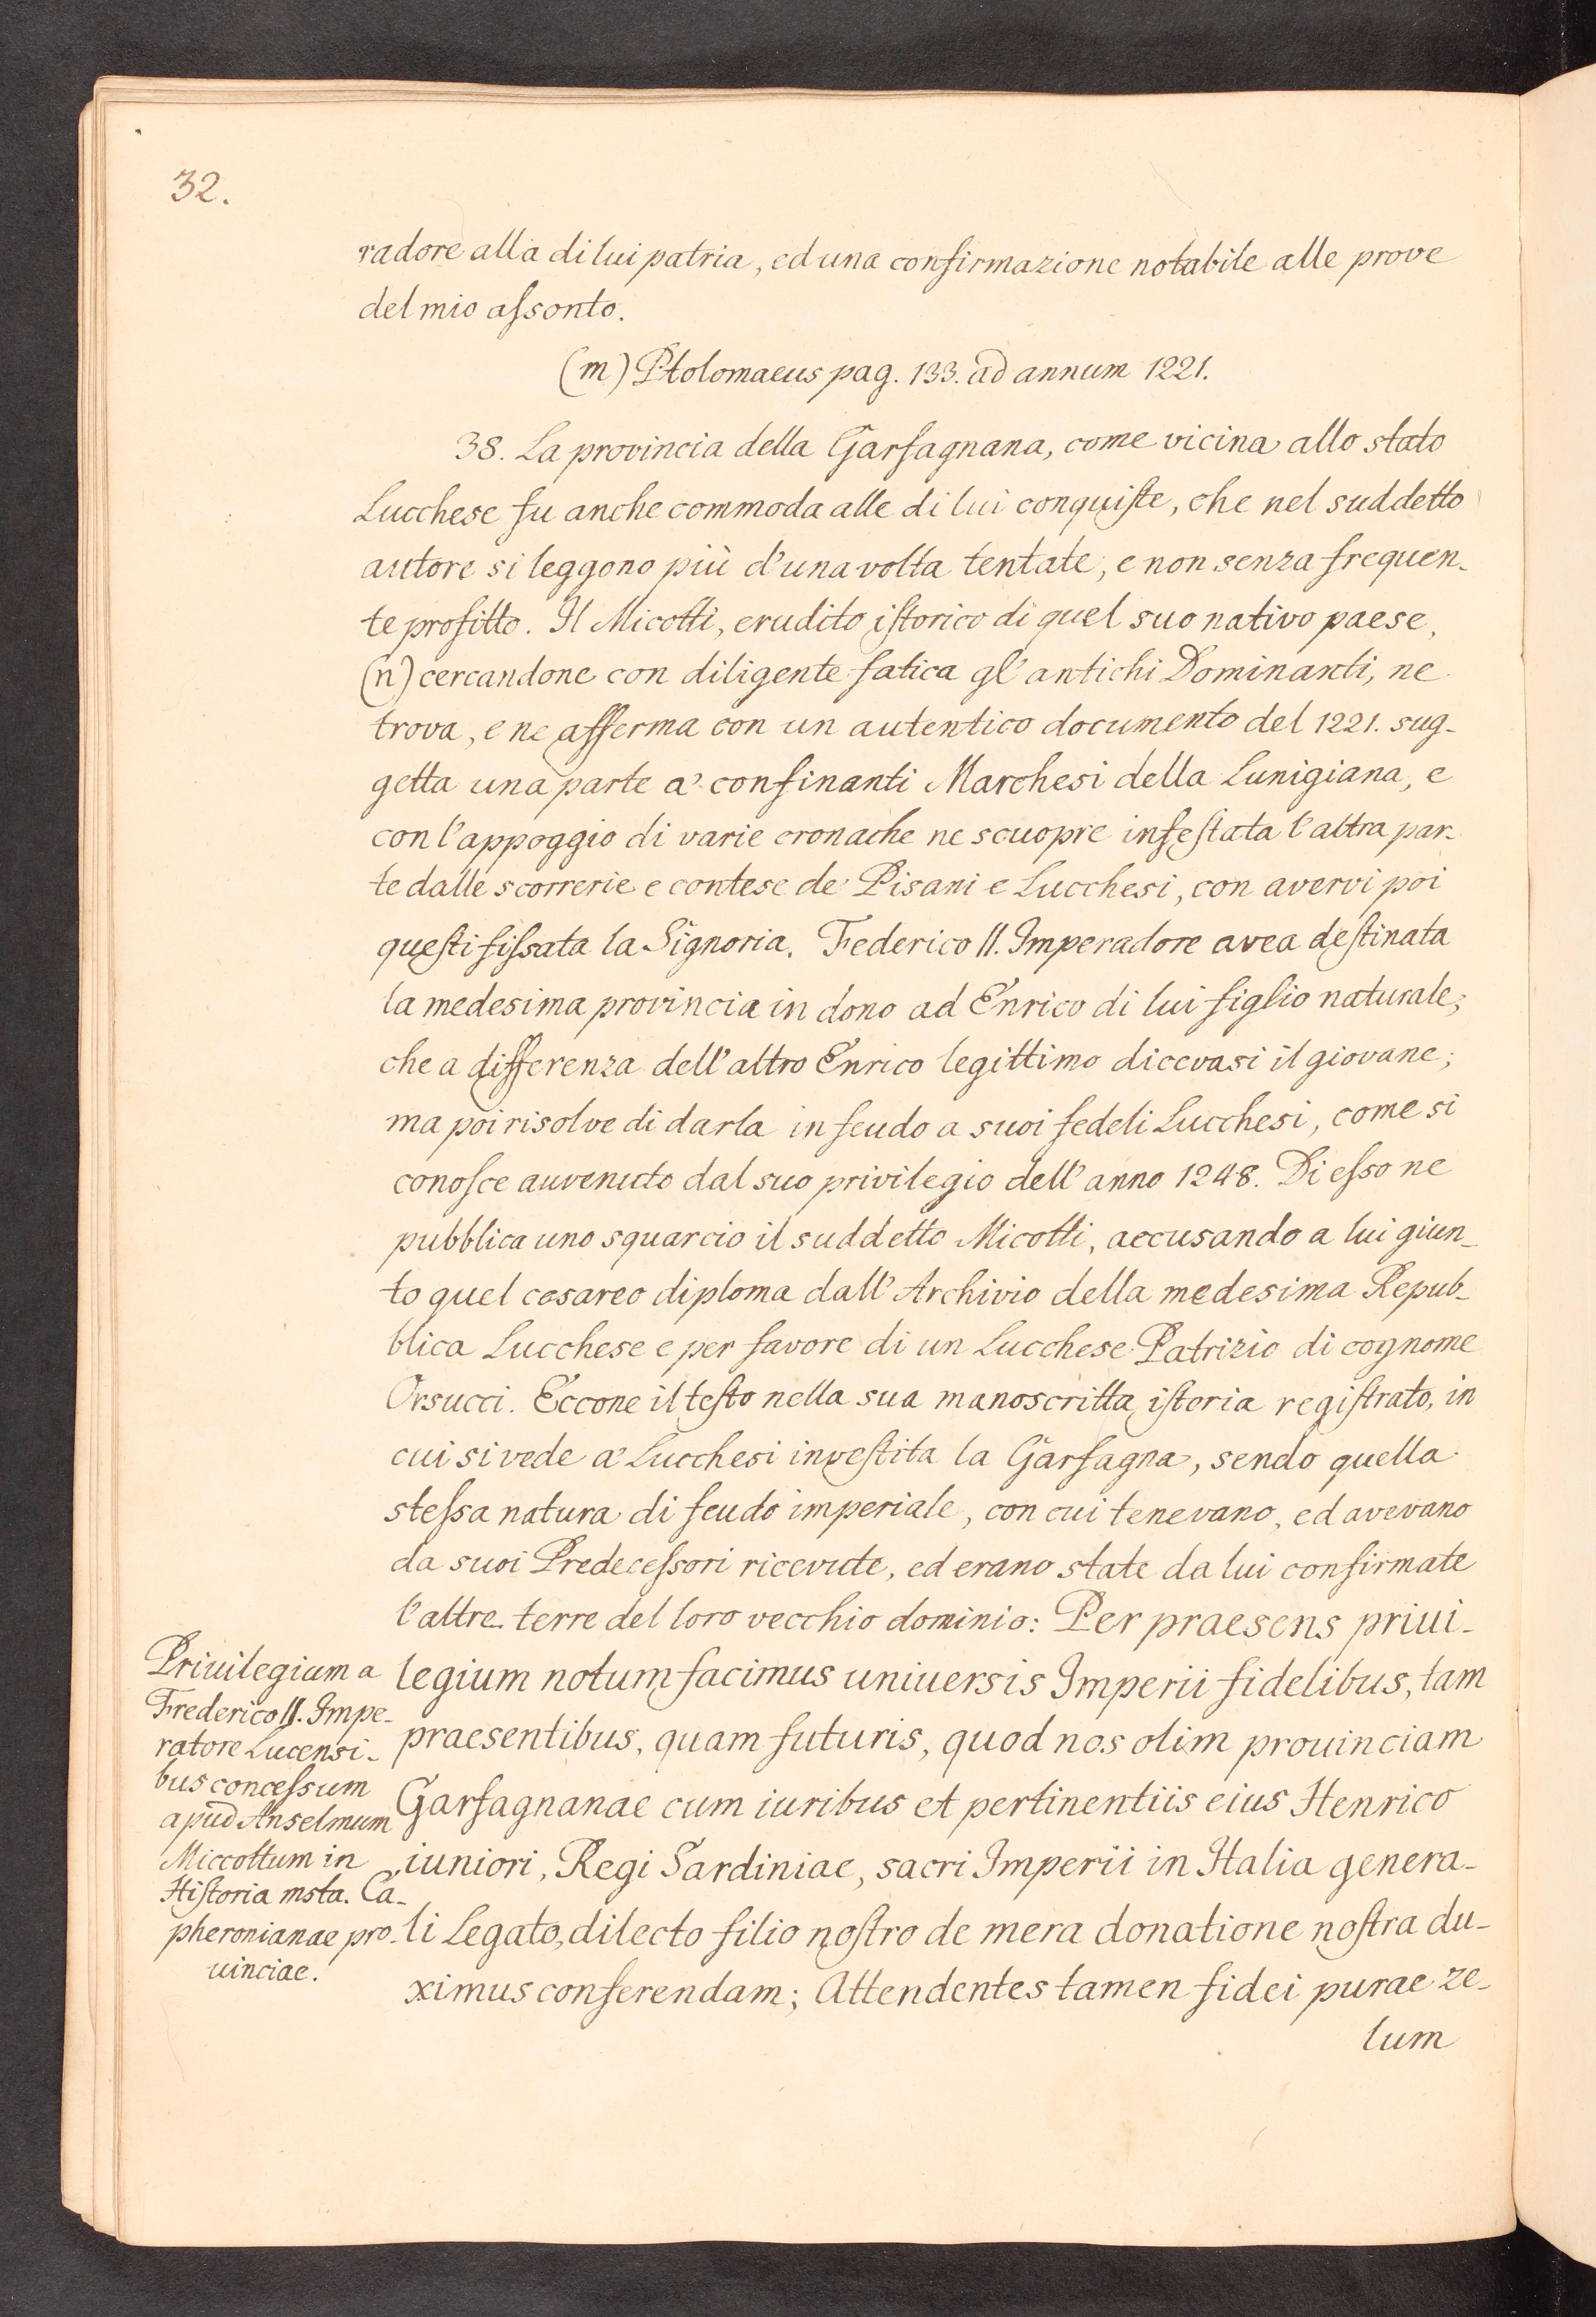 32.
radore alla di lui patria, ed una confirmazione notabile alle prove
del mio aſsonto.
(m) Ptolomaeus pag. 133. ad annum 1221.
38. La provincia della Garfagnana, come vicina allo stato
Lucchese fu anche commoda alle di lui conquiſte, che nel suddetto
autore si leggono più d'una volta tentate, e non senza frequen-
te profitto. Il Micotti, erudito iſtorico di quel suo nativo paese,
(n) cercandone con diligente fatica gl'antichi Dominanti, ne
trova, e ne afferma con un autentico documento del 1221. sug-
getta una parte a' confinanti Marchesi della Lunigiana, e
con l'appoggio di varie cronache ne scuopre infeſtata l'altra par-
te dalle scorrerie e contese de' Pisani e Lucchesi, con avervi poi
queſti fiſsata la Signoria. Federico II. Imperadore avea deſtinata
la medesima provincia in dono ad Enrico di lui figlio naturale,
che a differenza dell'altro Enrico legittimo dicevasi il giovane;
ma poi risolve di darla in feudo a suoi fedeli Lucchesi, come si
conoſce auvenuto dal suo privilegio dell'anno 1248. Di eſso ne
pubblica uno squarcio il suddetto Micotti, accusando a lui giun-
to quel cesareo diploma dall'Archivio della medesima Repub-
blica Lucchese e per favore di un Lucchese Patrizio di cognome
Orsucci. Eccone il teſto nella sua manoscritta iſtoria regiſtrato, in
cui si vede a' Lucchesi inveſtita la Garfagna, sendo quella
steſsa natura di feudo imperiale, con cui tenevano, ed avevano
da suoi Predeceſsori ricevute, ed erano state da lui confirmate
l'altre terre del loro vecchio dominio: Per praesens priui-
legium notum facimus uniuersis Imperii fidelibus, tam
praesentibus, quam futuris, quod nos olim prouinciam
Garfagnanae cum iuribus et pertinentiis eius Henrico
iuniori, Regi Sardiniae, sacri Imperii in Italia genera-
li Legato, dilecto filio noſtro de mera donatione noſtra du-
ximus conferendam; Attendentes tamen fidei purae ze-
lum
Priuilegium a
Frederico II. Impe-
ratore Lucensi-
bus conceſsum
apud Anselmum
Miccottum in
Hiſtoria msta. Ca-
pheronianae pro-
uinciae.